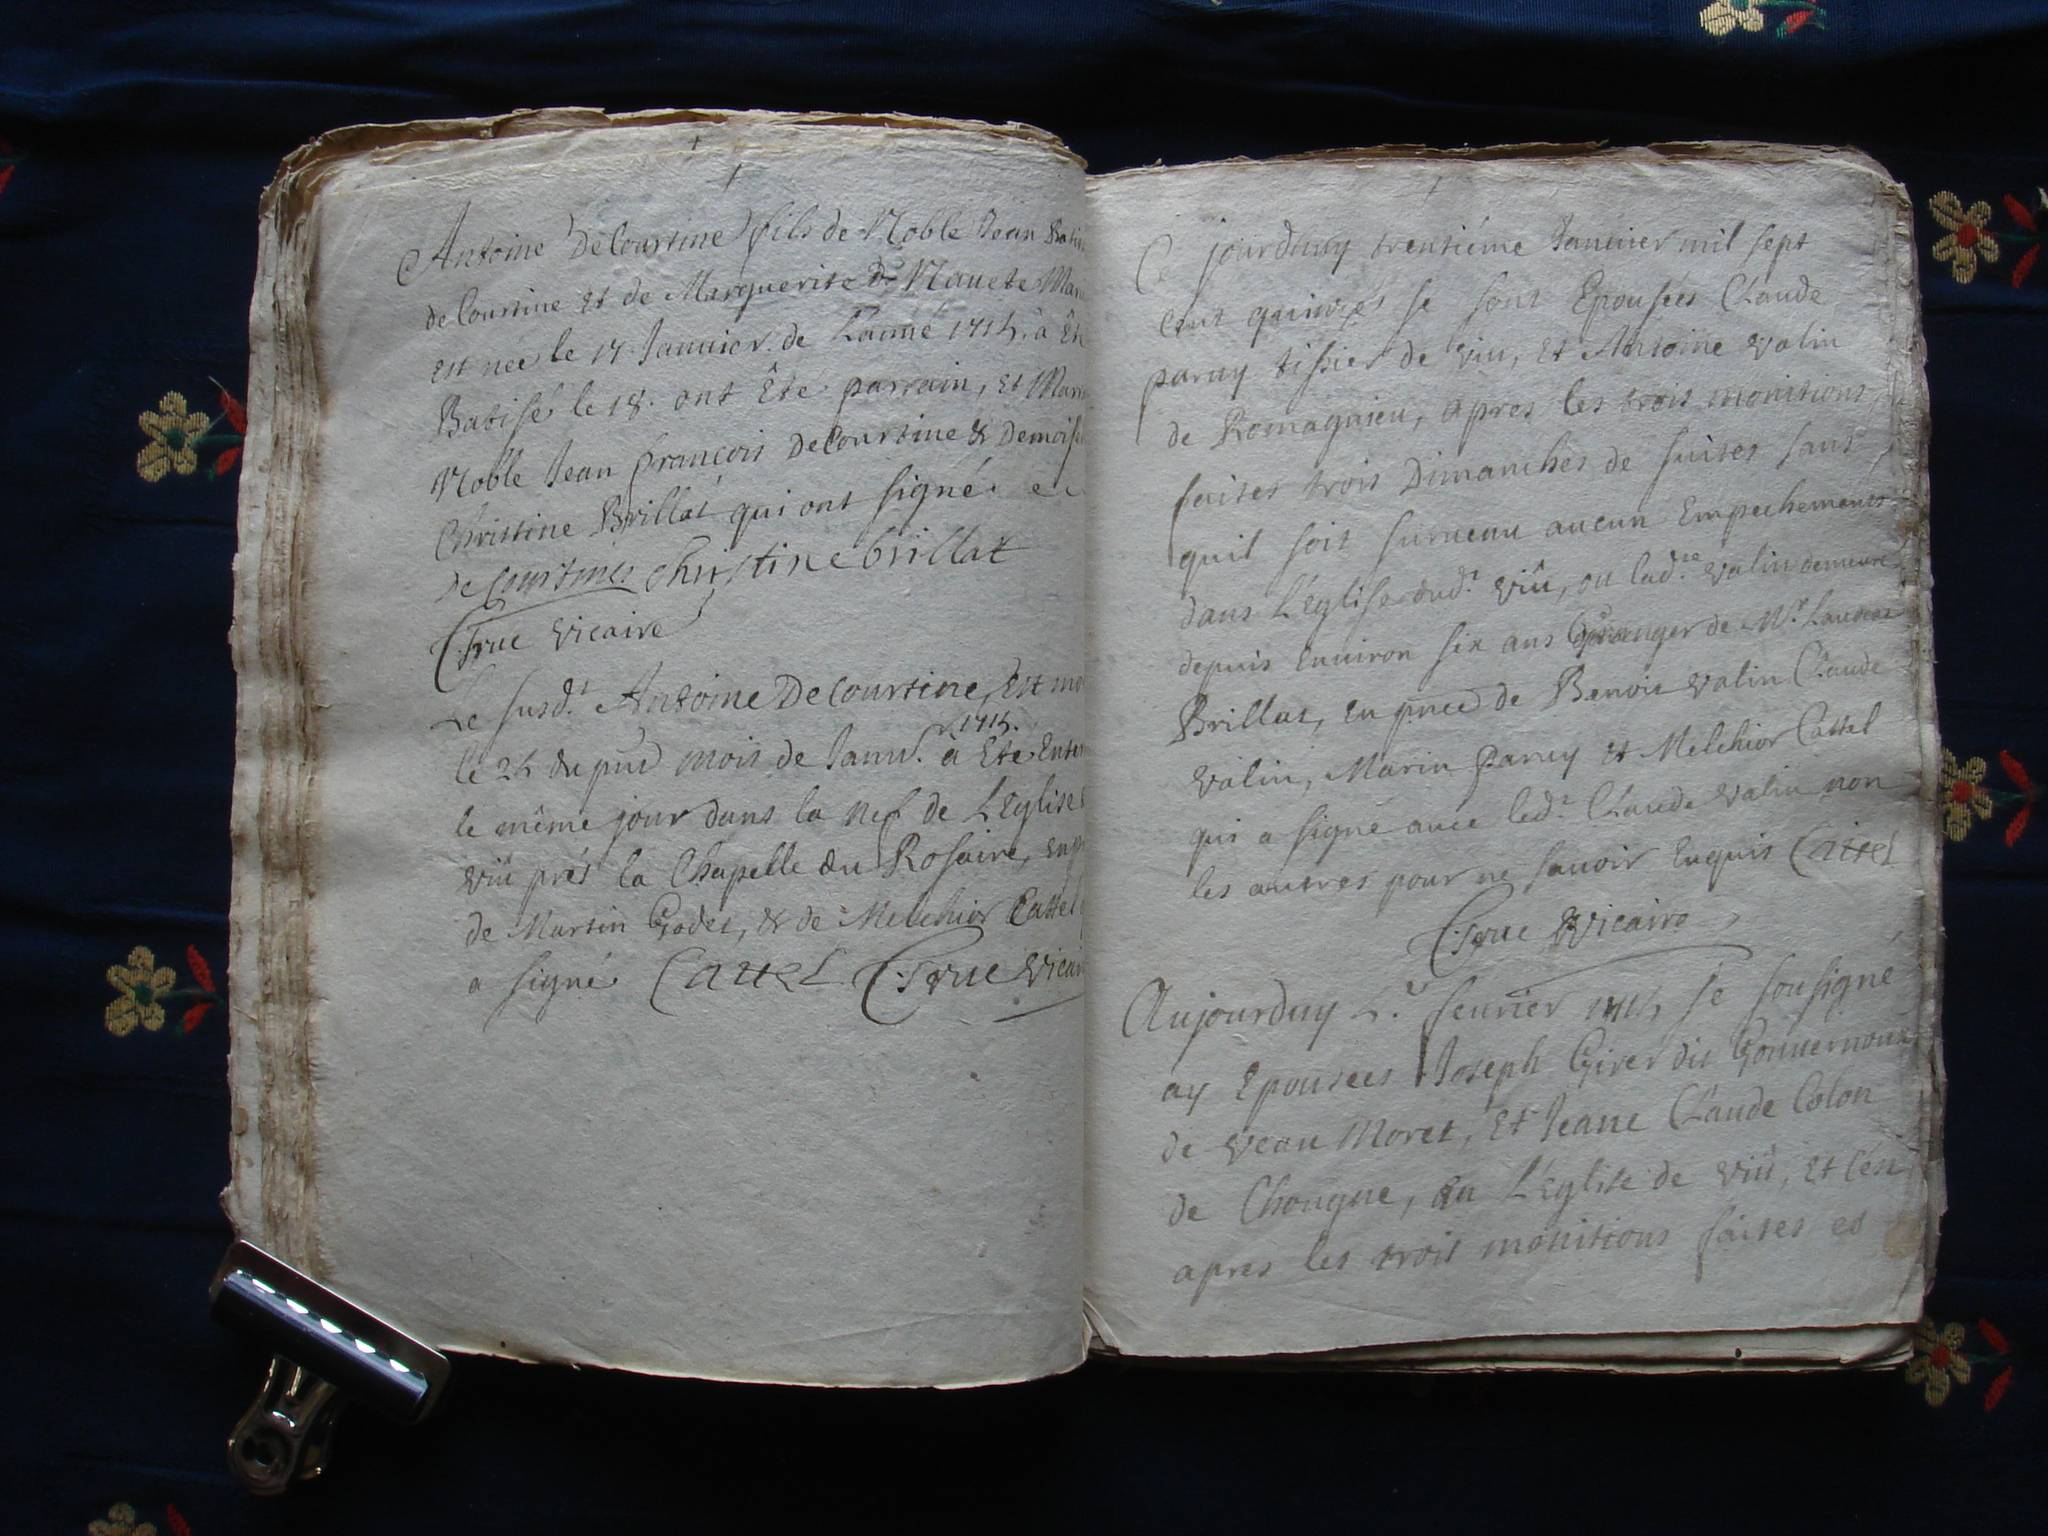 Antoine DeCourtine fils de Noble Jean Bati
de Courtine et de Marguerite de Nauete
est née le 17 Januier de Lanné 1715. à
Batisé le 18. ont Été parrain, et
Noble Jean francois DeCourtine & Demois
Christine Brillat qui ont signé.
de Courtines christine brillat
C: Srue vicaire
Le susd.t Antoine DeCourtine, Est mo
1715.
le 25 du pnt mois de Janu.r à Éte Enter
le même jour dans la nef de L'Eglise
viû prés la Chapelle du Rosaire, en
de Martin Godet, & de Melchior Cattel
a signé Cattel C: Srue vicair
Ce jourdhuy trentiéme Januier mil sept
cent quinzes se sont Epousées Claude
paruy tissier de viu, et Antoine valin
de Romagnieu, apres les trois monitions
faites trois Dimanches de suites sans
quil soit surueau aucun Empechements
dans L'Eglise dud.t viû, ou lad.te valin demeure
depuis Enuiron six ans Granger de M.r Laurens
Brillat, en pnce de Benoit valin Claude
valin, Marin paruy et Melchior Cattel
qui a signé auec led.t Claude valin non
les autres pour ne sauoir Enquis Cattel
C: Srue vicaire
Aujourduy 5.e feurier 1715 je sousigné
ay Epousees Joseph Girer dit Gouuernoux
de veau Moret, Et Jeane Claude Colon
de Chougne, en L'Eglise de viû, et Cest
apres les trois monitions faites et